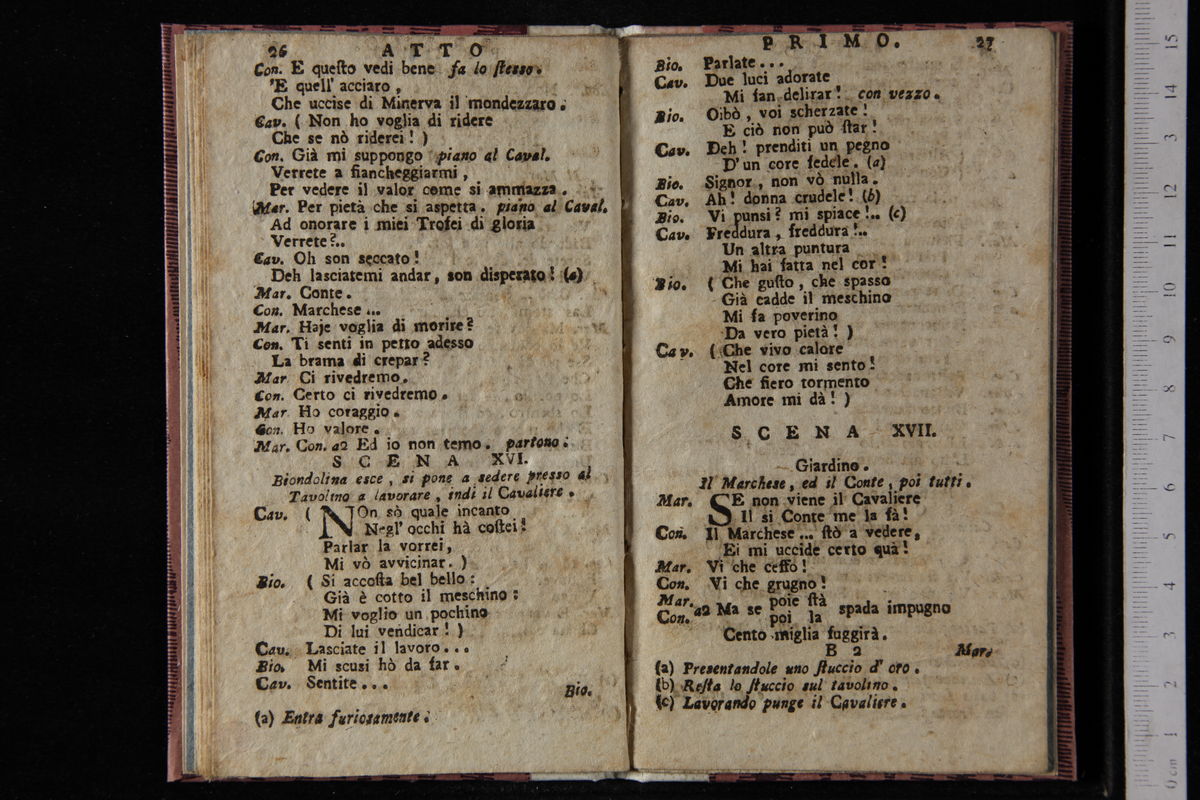 26 ATTO
Con. E queſto vedi bene fa lo ſtesso.
'E quell' acciaro,
Che uccise di Minerva il mondezzaro.
Cav. ( Non ho voglia di ridere
Che se nò riderei! )
Con. Già mi suppongo piano al Caval.
Verrete a fiancheggiarmi,
Per vedere il valor come si ammazza.
Mar. Per pietà che si aspetta. piano al Caval.
Ad onorare i miei Trofei di gloria
Verrete?..
Cav. Oh son seccato!
Deh lasciatemi andar, son disperato! (a)
Mar. Conte.
Con. Marchese...
Mar. Haje voglia di morire?
Con. Ti senti in petto adesso
La brama di crepar?
Mar Ci rivedremo.
Con. Certo ci rivedremo.
Mar. Ho coraggio.
Con. Ho valore.
Mar. Con. a2 Ed io non temo. partono.
SCENA XVI.
Biondolina esce, si pone a sedere presso al
Tavolino a lavorare, indi il Cavaliere.
Cav. ( NOn sò quale incanto
Negl' occhi hà coſtei!
Parlar la vorrei,
Mi vò avvicinar. )
Bio. ( Si accoſta bel bello:
Già è cotto il meschino:
Mi voglio un pochino
Di lui vendicar! )
Cav. Lasciate il lavoro...
Bio. Mi scusi hò da far.
Cav. Sentite...
Bio.
(a) Entra furiosamente.
PRIMO. 27
Bio. Parlate...
Cav. Due luci adorate
Mi fan delirar! con vezzo.
Bio. Oibò, voi scherzate!
E ciò non può ſtar!
Cav. Deh! prenditi un pegno
D'un core fedele. (a)
Bio. Signor, non vò nulla.
Cav. Ah! donna crudele! (b)
Bio. Vi punsi? mi spiace!.. (c)
Cav. Freddura, freddura!..
Un altra puntura
Mi hai fatta nel cor!
Bio. ( Che guſto, che spasso
Già cadde il meschino
Mi fa poverino
Da vero pietà! )
Cav. ( Che vivo calore
Nel core mi sento!
Che fiero tormento
Amore mi dà! )
SCENA XVII.
Giardino.
Il Marchese, ed il Conte, poi tutti.
Mar. SE non viene il Cavaliere
Il si Conte me la fà!
Con. Il Marchese... ſtò a vedere,
Ei mi uccide certo quà!
Mar. Vi che ceffo!
Con. Vi che grugno!
Mar. Con. a2 Ma se poie ſtà
poi la spada impugno
Cento miglia fuggirà.
B 2 Mar.
(a) Presentandole uno ſtuccio d' oro.
(b) Reſta lo ſtuccio sul tavolino.
(c) Lavorando punge il Cavaliere.